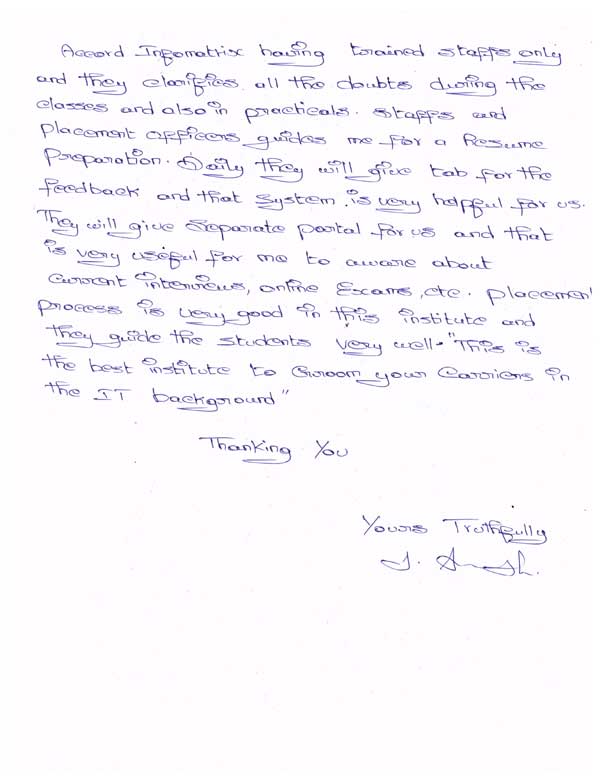 Accord Infomatrix having trained staffs only
and they clarifies all the doubts during the
classes and also in practicals. Staffs and
placement officers guides me for a Resume
Preparation. Daily they will give tab for the
feedback and that system is very helpful for us.
They will give Separate portal for us and that
is very useful for me to aware about
Current interviews, online Exams, etc. placement
process is very good in this institute and
they guide the students very well. "This is
the best institute to Groom your Carriers in
the IT background"
Thanking You
Yours Truthfully